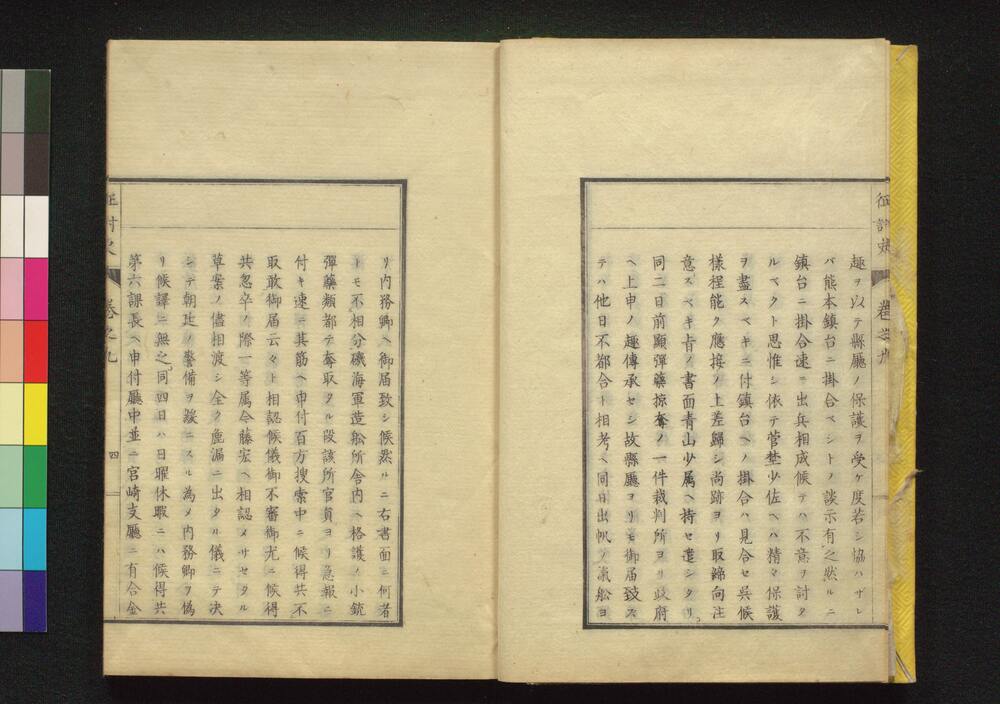 趣ヲ以テ縣廳ノ保護ヲ受ケ度若シ協ハザレ
バ熊本鎮台ニ掛合ベシトノ談示有之然ルニ
鎮台ニ掛合速ニ出兵相成候テハ不意ヲ討タ
ルベクト思惟シ依テ菅埜少佐ヘハ精々保護
ヲ盡スベキニ付鎮台ヘノ掛合ハ見合セ呉候
樣程能ク應接ノ上差歸シ尚跡ヨリ取締向注
意スベキ旨ノ書面青山少属ヘ持セ遣シタリ
同二日前顯彈藥掠奪ノ一件裁判所ヨリ政府
ヘ上申ノ趣傳承セシ故縣廳ヨリモ御届致ス
テハ他日不都合ト相考ヘ同日出帆ノ滊舩ヨ
卷之九
リ内務卿ヘ御届致シ候然ルニ右書面ニ何者
トモ不相分磯海軍造舩所舎内ヘ格護ノ小銃
彈藥類都テ奪取タル段該所官員ヨリ急報ニ
付キ速ニ其筋ヘ申付百方搜索中ニ候得共不
取敢御届云々ト相認候儀御不審御尤ニ候得
共怱卒ノ際一等属令藤宏ヘ相認メサセタル
草案ノ儘相渡シ全ク麁漏ニ出タル儀ニテ决
シテ朝廷ノ警備ヲ緩ニスル為メ内務卿ヲ偽
リ候譯ニ無之同四日ハ日曜休暇ニハ候得共
第六課長ヘ申付廳中並ニ宮崎支廳ニ有合金
征討史
卷之九
四